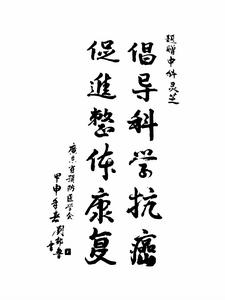 题赠中科灵芝
倡导科学抗癌
促進整体康复
广东省预防医学会
甲申年
书